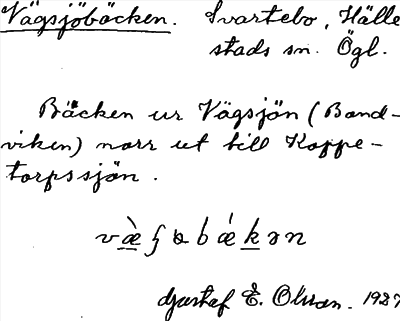 Vägsjöbäcken. Svartebo, Hälle
stads sn. Ögl.
Bäcken ur Vägsjön (Band-
viken) norr ut till Koppe-
torpssjön.
Gustaf E. Olsson. 1927